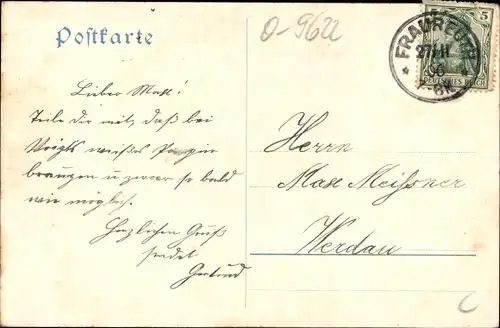 Postkarte
O-9622
FRAUREUTH
27/11
06
5
DEUTSCHES REICH
Lieber Max!
Teile Dir mit, daß bei
Voigts weißes Papier
brauchen u zwar so bald
wie möglich.
Herzlichen Gruß
sendet
Gertrud
Herrn
Max Meissner
Werdau